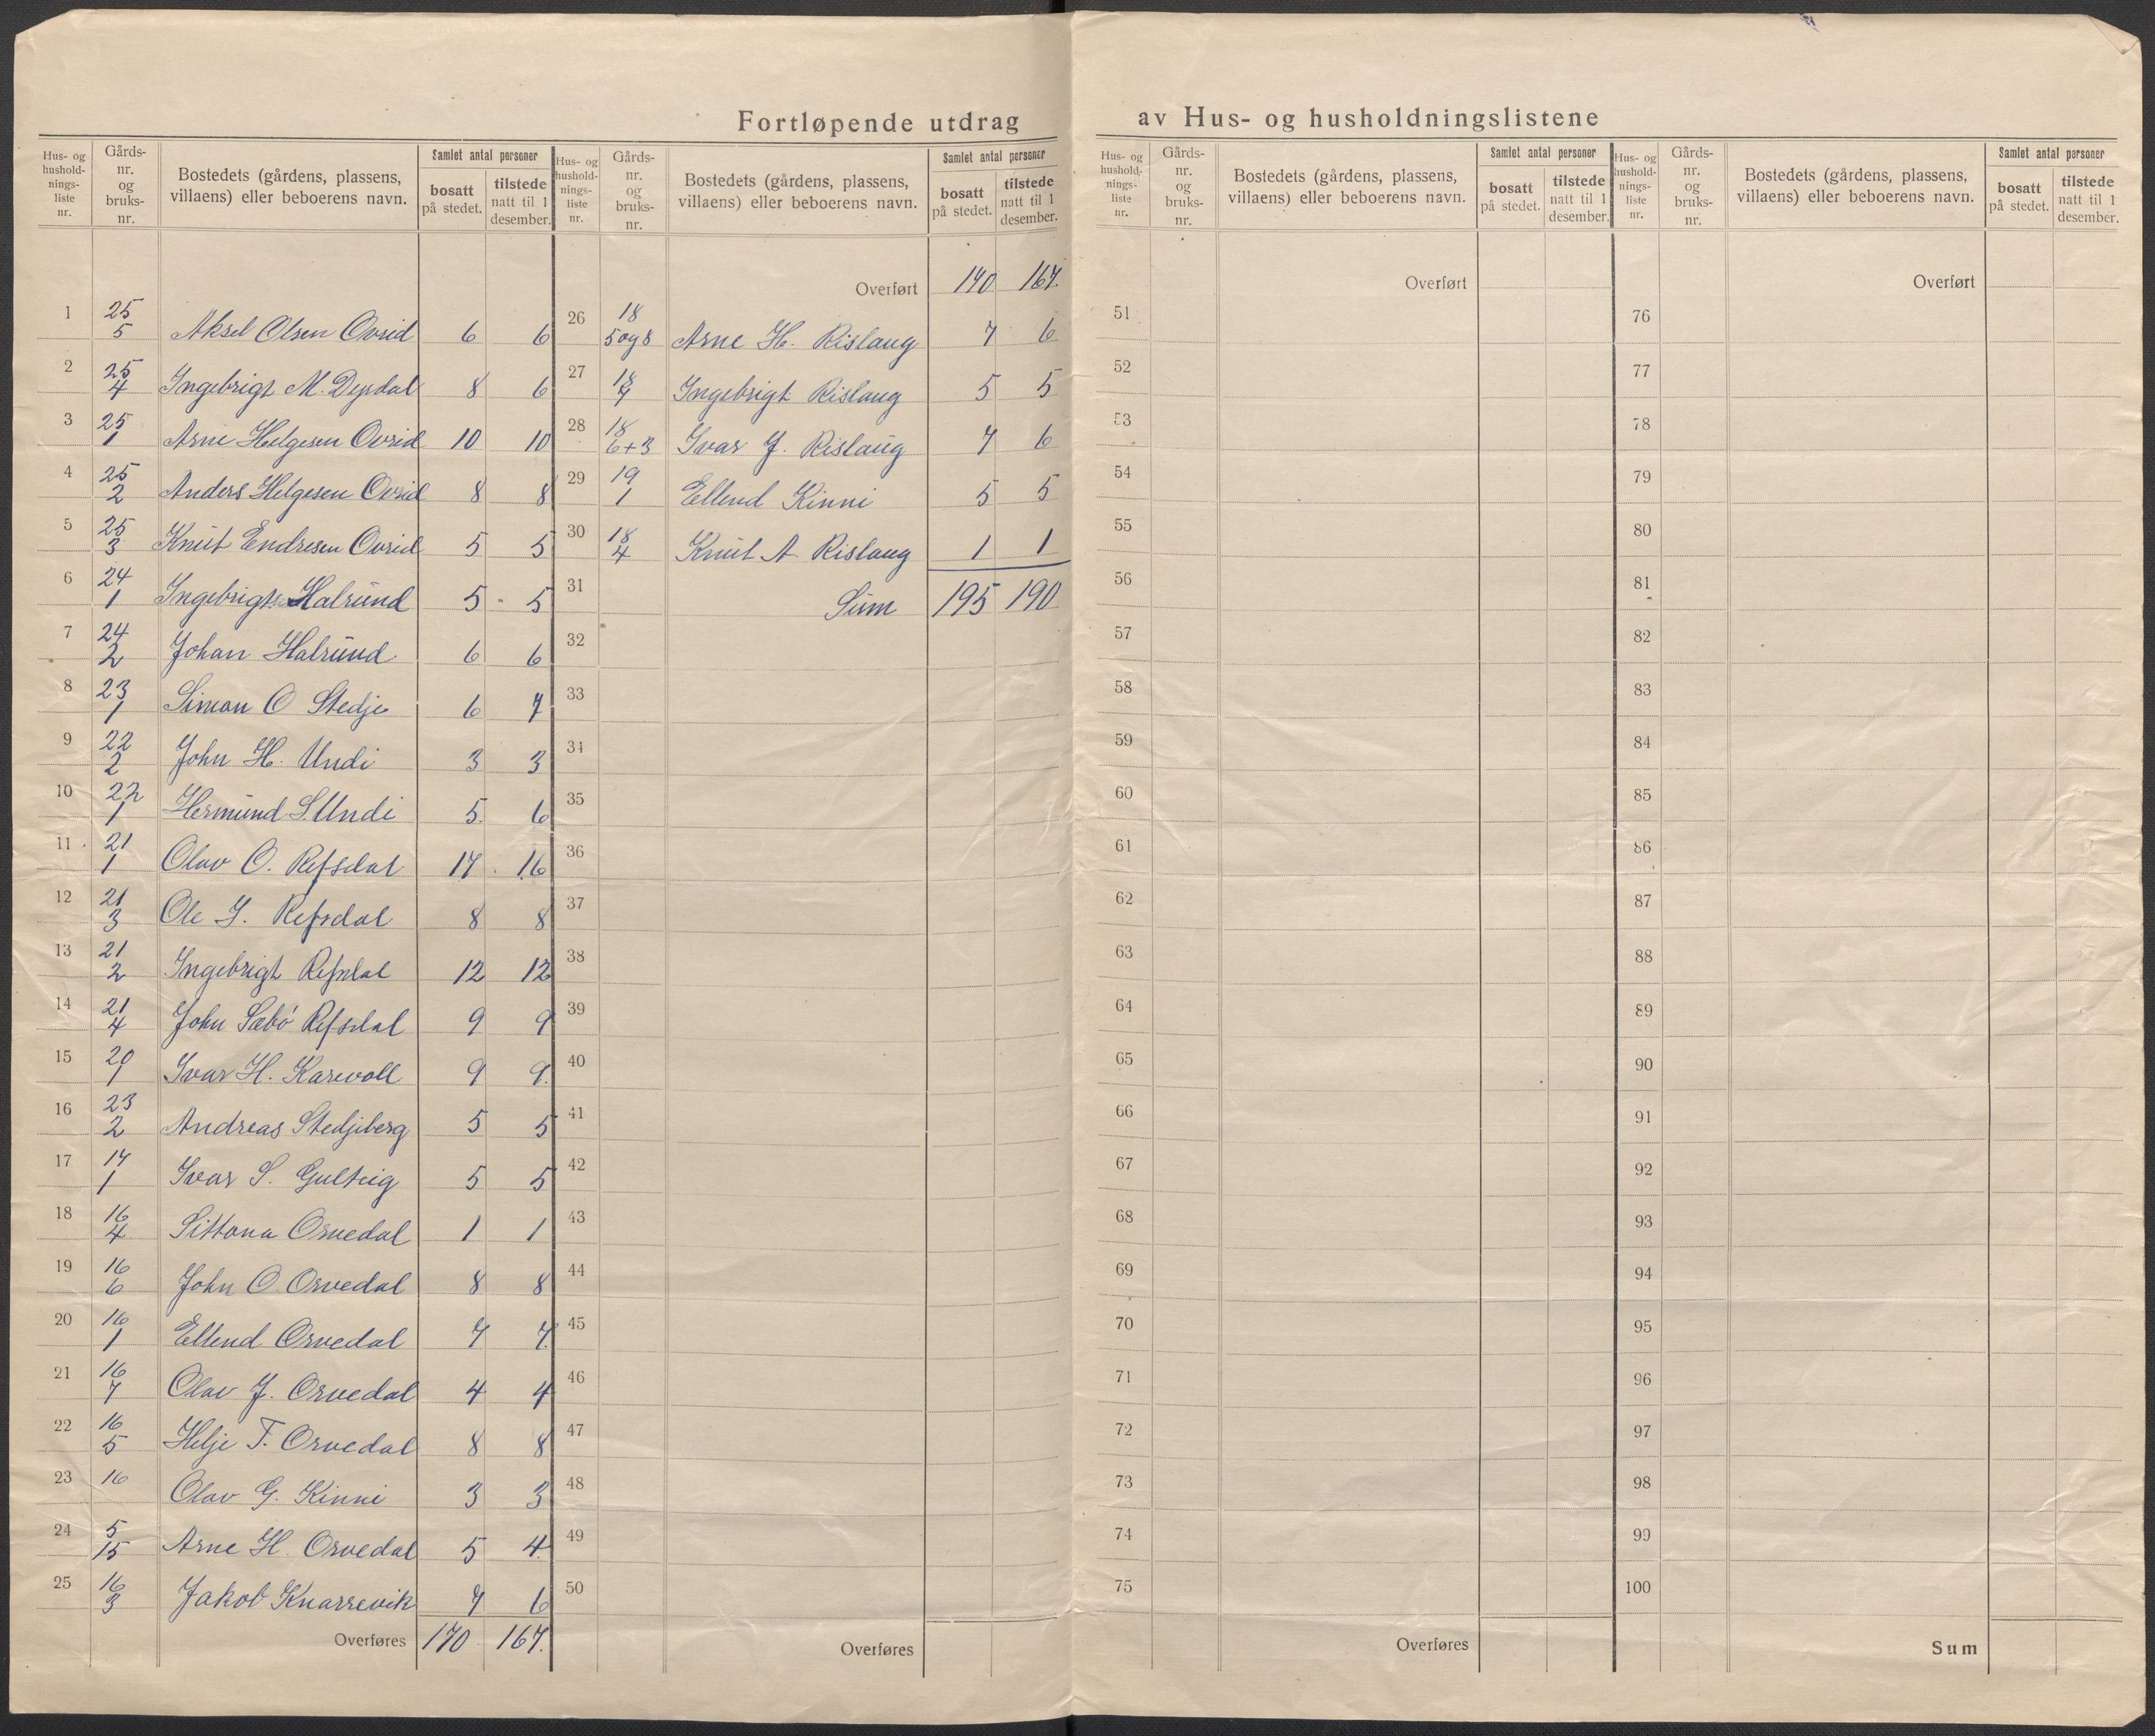 Fortløpende utdrag av Hus- og husholdningslistene
Hus- og husholdningsliste nr. Gårds-nr. og bruks-nr. Bostedets (gårdens, plassens, villaens) eller beboerens navn. Samlet antal personer bosatt på stedet. tilstede natt til 1 desember.
1 25/5 Aksel Olsen Ovrid 6 6
2 25/4 Ingebrigt M. Dyrdal 8 6
3 25/1 Arne Helgesen Ovrid 10 10
4 25/2 Anders Helgesen Ovrid 8 8
5 25/3 Knut Endresen Ovrid 5 5
6 24/1 Ingebrigt Halrund 5 5
7 24/2 Johan Halrund 6 6
8 23/1 Simon O Stedje 6 7
9 22/2 John H. Undi 3 3
10 22/1 Hermund S. Undi 5 6
11 21/1 Olav O. Refsdal 17 16
12 21/3 Ole I. Refsdal 8 8
13 21/2 Ingebrigt Refsdal 12 12
14 21/4 John Sæbö Refsdal 9 9
15 20/1 Ivar H. Karevoll 9 9
16 23/2 Andreas Stedjeberg 5 5
17 17/1 Ivar S. Gulteig 5 5
18 16/4 Sittona Orvedal 1 1
19 16/6 John O. Orvedal 8 8
20 16/1 Ellend Orvedal 7 7
21 16/7 Olav J. Orvedal 4 4
22 16/5 Helje T. Orvedal 8 8
23 16 Olav G. Kinni 3 3
24 5/15 Arne H. Orvedal 5 4
25 16/3 Jakob Knarrevik 7 6
Overføres 170 167.
Hus- og husholdningsliste nr. Gårds-nr. og bruks-nr. Bostedets (gårdens, plassens, villaens) eller beboerens navn. Samlet antal personer bosatt på stedet. tilstede natt til 1 desember.
Overført 170 167.
26 18/5 og 8 Arne H. Rislaug 7 6
27 18/7 Ingebrigt Rislaug 5 5
28 18/6+3 Ivar J. Rislaug 7 6
29 19/1 Ellend Kinni 5 5
30 18/4 Knut A. Rislaug 1 1
31 Sum 195 190
32
33
34
35
36
37
38
39
40
41
42
43
44
45
46
47
48
49
50
Overføres
Hus- og husholdningsliste nr. Gårds-nr. og bruks-nr. Bostedets (gårdens, plassens, villaens) eller beboerens navn. Samlet antal personer bosatt på stedet. tilstede natt til 1 desember.
Overført
51
52
53
54
55
56
57
58
59
60
61
62
63
64
65
66
67
68
69
70
71
72
73
74
75
Overføres
Hus- og husholdningsliste nr. Gårds-nr. og bruks-nr. Bostedets (gårdens, plassens, villaens) eller beboerens navn. Samlet antal personer bosatt på stedet. tilstede natt til 1 desember.
Overført
76
77
78
79
80
81
82
83
84
85
86
87
88
89
90
91
92
93
94
95
96
97
98
99
100
Sum